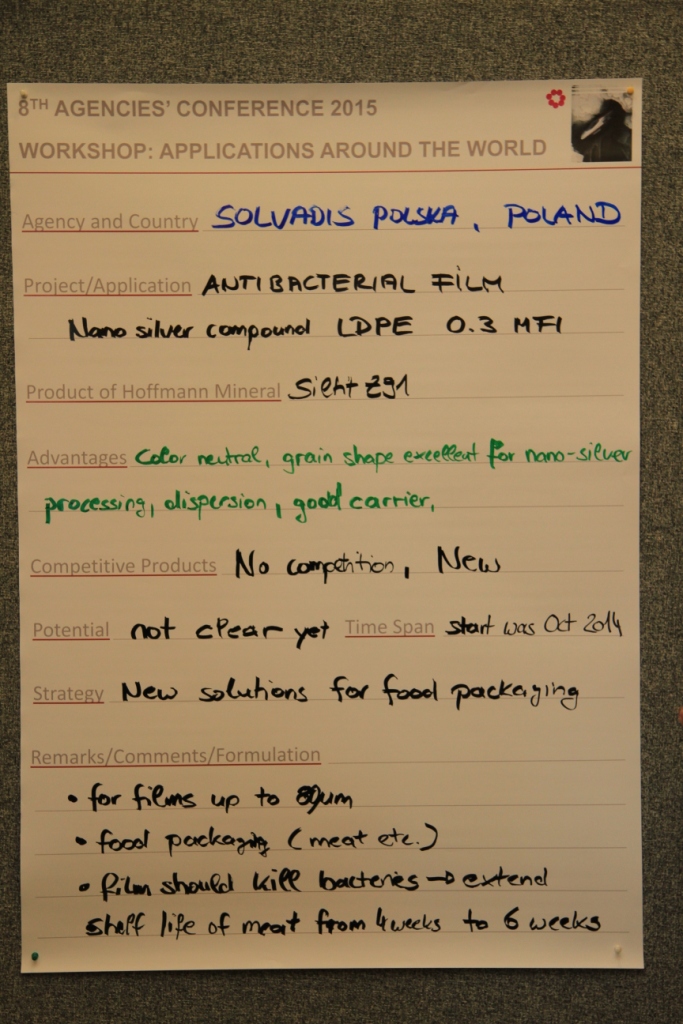 8TH AGENCIES' CONFERENCE 2015
WORKSHOP: APPLICATIONS AROUND THE WORLD
Agency and Country SOLVADIS POLSKA, POLAND
Project/Application ANTIBACTERIAL FILM
Nano silver compound LDPE 0.3 MFI
Product of Hoffmann Mineral Silht Z91
Advantages Color neutral, grain shape excellent for nano-silver
processing, dispersion, good carrier,
Competitive Products No competition, New
Potential not clear yet Time Span start was Oct 2014
Strategy New solutions for food packaging
Remarks/Comments/Formulation
• for films up to 80µm
• food packaging (meat etc.)
• film should kill bacteries → extend
shelf life of meat from 4 weeks to 6 weeks